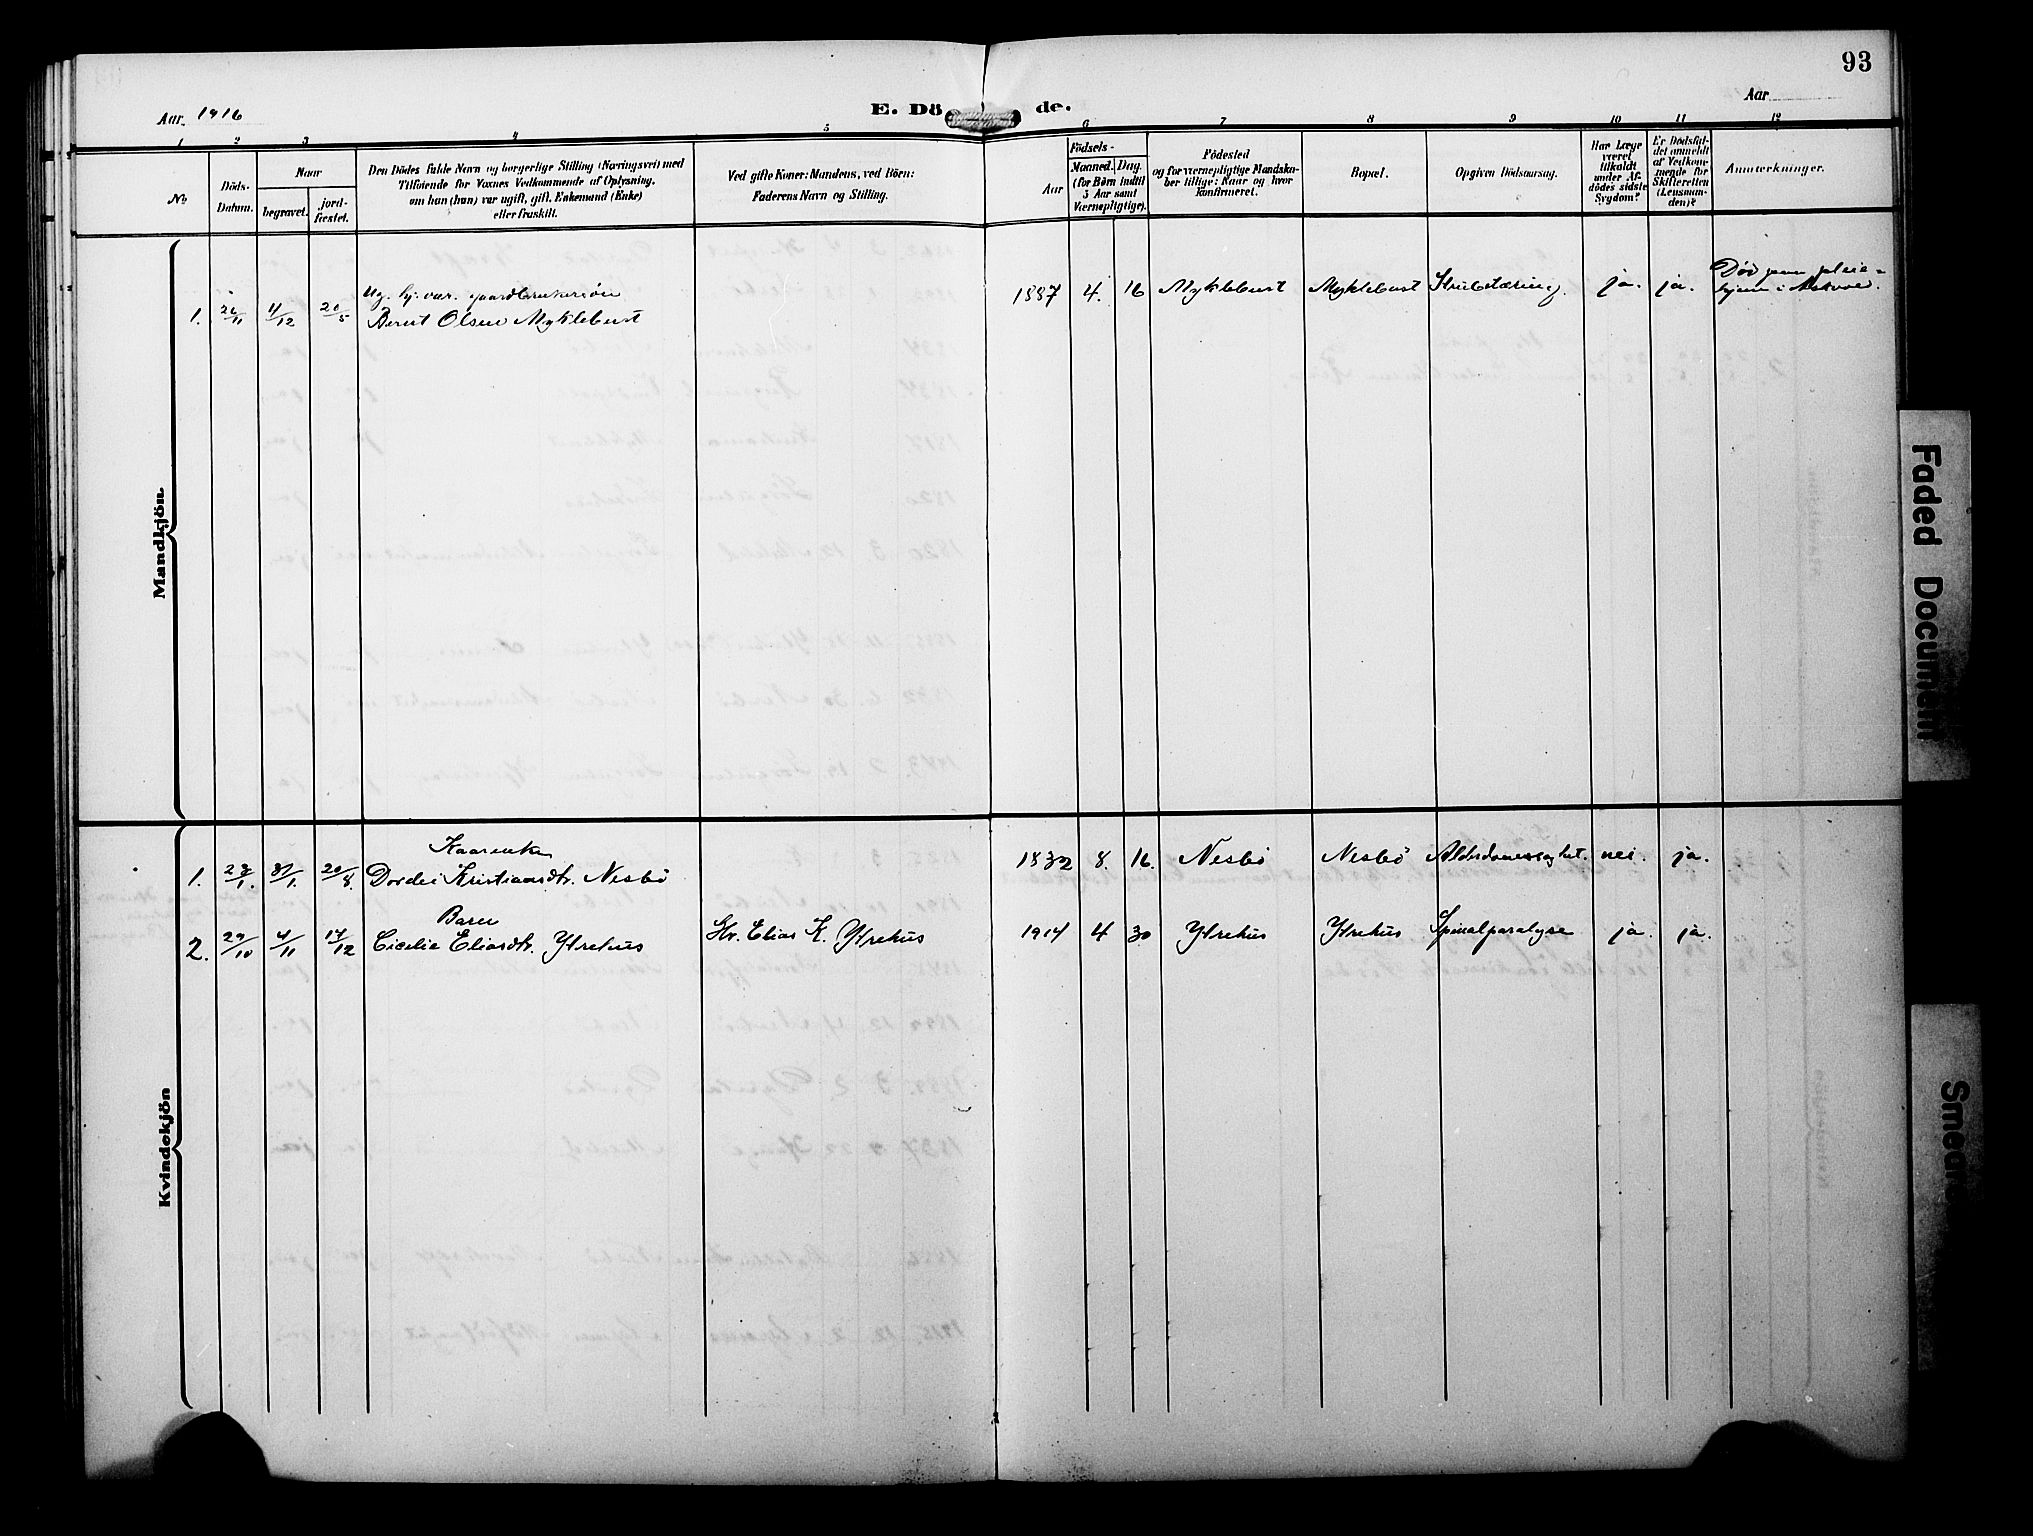 93
Aar 1916
E. Dö de.
Aar
1 2 3 4 5 6 7 8 9 10 11 12
No
Döds-
Datum.
Naar
begravet.
jord-
fæstet.
Den Dödes fulde Navn og borgerlige Stilling (Næringsvei) med
Tilföiende for Voxnes Vedkommende af Oplysning,
om han (hun) var ugift, gift, Enkemand (Enke)
eller fraskilt.
Ved gifte Koner: Mandens, ved Börn:
Faderens Navn og Stilling.
Födsels-
Aar
Maaned.
Dag.
(for Børn indtil
5 Aar samt
Værnepligtige).
Födested
og for værnepligtige Mandska-
ber tillige: Naar og hvor
konfirmeret.
Bopæl.
Opgiven Dödsaarsag.
Har Læge
været
tilkaldt
under Af-
dödes sidste
Sygdom?
Er Dödsfal-
det anmeldt
af Vedkom-
mende for
Skifteretten
(Lensman-
den)?
Anmærkninger.
Mandkjön.
1. 26/11 4/12 20/5 Ug. hj. vær. gaardbrukersön
Bernt Olsen Myklebust
1887 4. 16 Myklebust Myklebust Strubetæring. ja. ja. Död paa pleie-
hjem i Askvoll.
Kvindekjön
Kaarenke
1. 23/1. 31/1. 20/8. Dordei Kristiansdtr. Nesbö 1832 8. 16. Nesbö Nesbö Alderdomssvaghet. nei. ja.
Barn
2. 29/10 4/11 17/12 Cicelie Eliasdtr. Ytrehus Gbr. Elias K. Ytrehus 1914 4 30 Ytrehus Ytrehus Spinalparalyse ja. ja.
Faded Document
Smeare